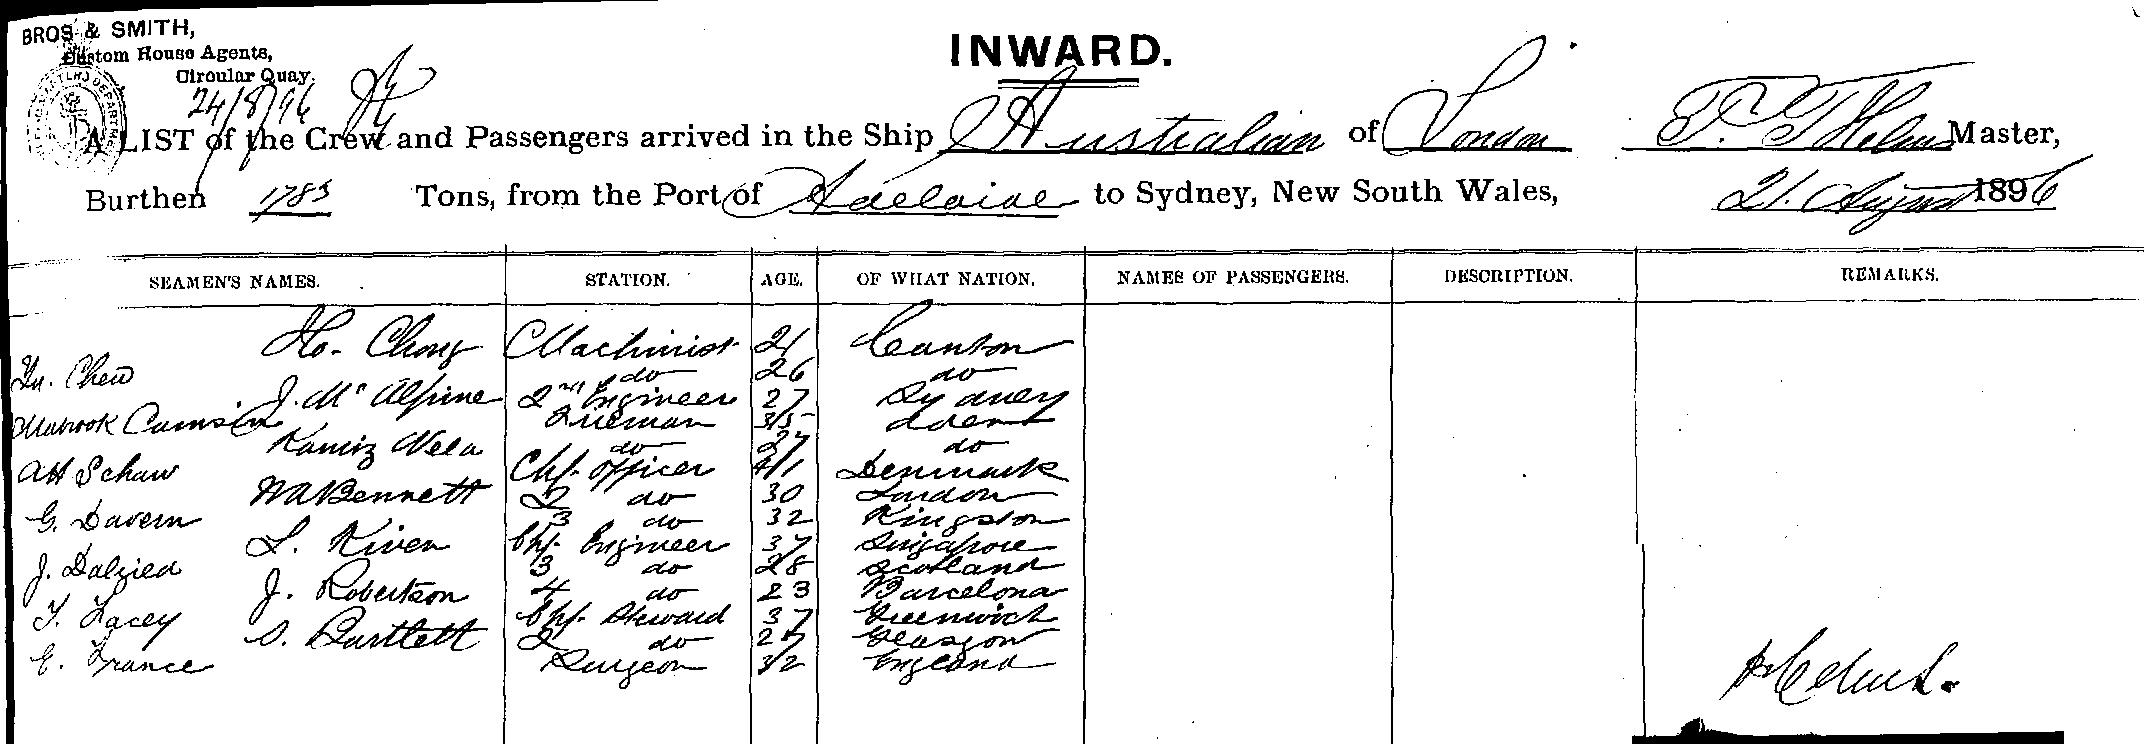 BROS & SMITH,
Custom House Agents,
Circular Quay.
24/8/96
INWARD.
A LIST of the Crew and Passengers arrived in the Ship Australian of London Master,
Burthen 1783 Tons, from the Port of Adelaide to Sydney, New South Wales, 21. August 1896
SEAMEN'S NAMES. STATION. AGE. OF WHAT NATION. NAMES OF PASSENGERS. DESCRIPTION. REMARKS.
Ho. Chong Machinist 21 Canton
Yu. Chew do 26 do
J. Mc Alpine 2nd Engineer 27 Sydney
Mabrook Cumsin Fireman 35 Aden
Kamiz Nela do 27 do
AH Schaw Chf. Officer 41 Denmark
WABennett 2 do 30 London
G. Davern 3 do 32 Kingston
L. Kiven Chf. Engineer 37 Singapore
J. Dalziea 3 do 28 Scotland
J. Robertson 4 do 23 Barcelona
T. Lacey Chf. Steward 37 Greenwich
O. Bartlett 2 do 27 Glasgow
E. France Surgeon 32 England